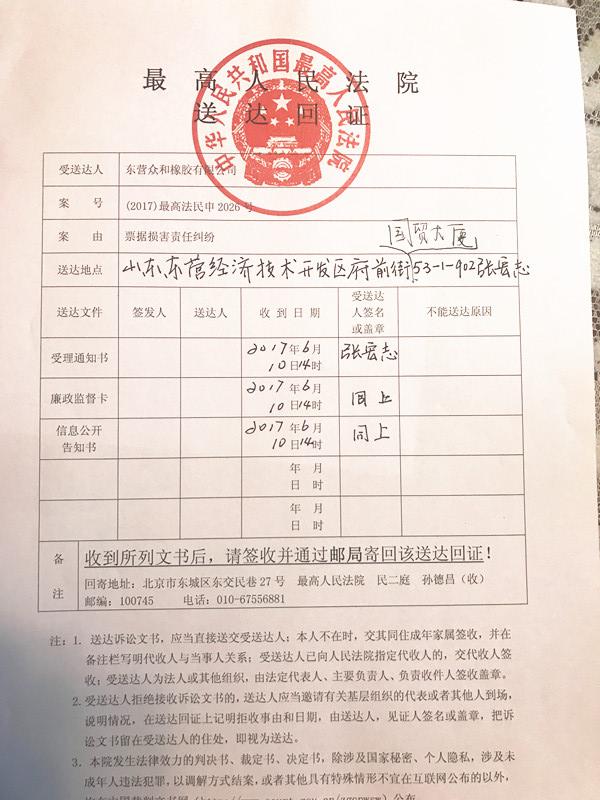 最高人民法院
中华人民共和国最高人民法院
送达回证
受送达人 东营众和橡胶有限公司
案号 (2017)最高法民申2026号
案由 票据损害责任纠纷
国贸大厦
送达地点 山东东营经济技术开发区府前街53-1-902张宏志
送达文件 签发人 送达人 收到日期 受送达人签名或盖章 不能送达原因
受理通知书 2017年6月10日14时 张宏志
廉政监督卡 2017年6月10日14时 同上
信息公开告知书 2017年6月10日14时 同上
年 月 日 时
年 月 日 时
备注 收到所列文书后，请签收并通过邮局寄回该送达回证！
回寄地址：北京市东城区东交民巷27号 最高人民法院 民二庭 孙德昌（收）
邮编：100745 电话：010-67556881
注：1. 送达诉讼文书，应当直接送交受送达人；本人不在时，交其同住成年家属签收，并在
备注栏写明代收人与当事人关系；受送达人已向人民法院指定代收人的，交代收人签
收；受送达人为法人或其他组织，由法定代表人、主要负责人、负责收件人签收盖章。
2. 受送达人拒绝接收诉讼文书的，送达人应当邀请有关基层组织的代表或者其他人到场，
说明情况，在送达回证上记明拒收事由和日期，由送达人，见证人签名或盖章，把诉
讼文书留在受送达人的住处，即视为送达。
3. 本院发生法律效力的判决书、裁定书、决定书，除涉及国家秘密、个人隐私，涉及未
成年人违法犯罪，以调解方式结案，或者其他具有特殊情形不宜在互联网公布的以外，